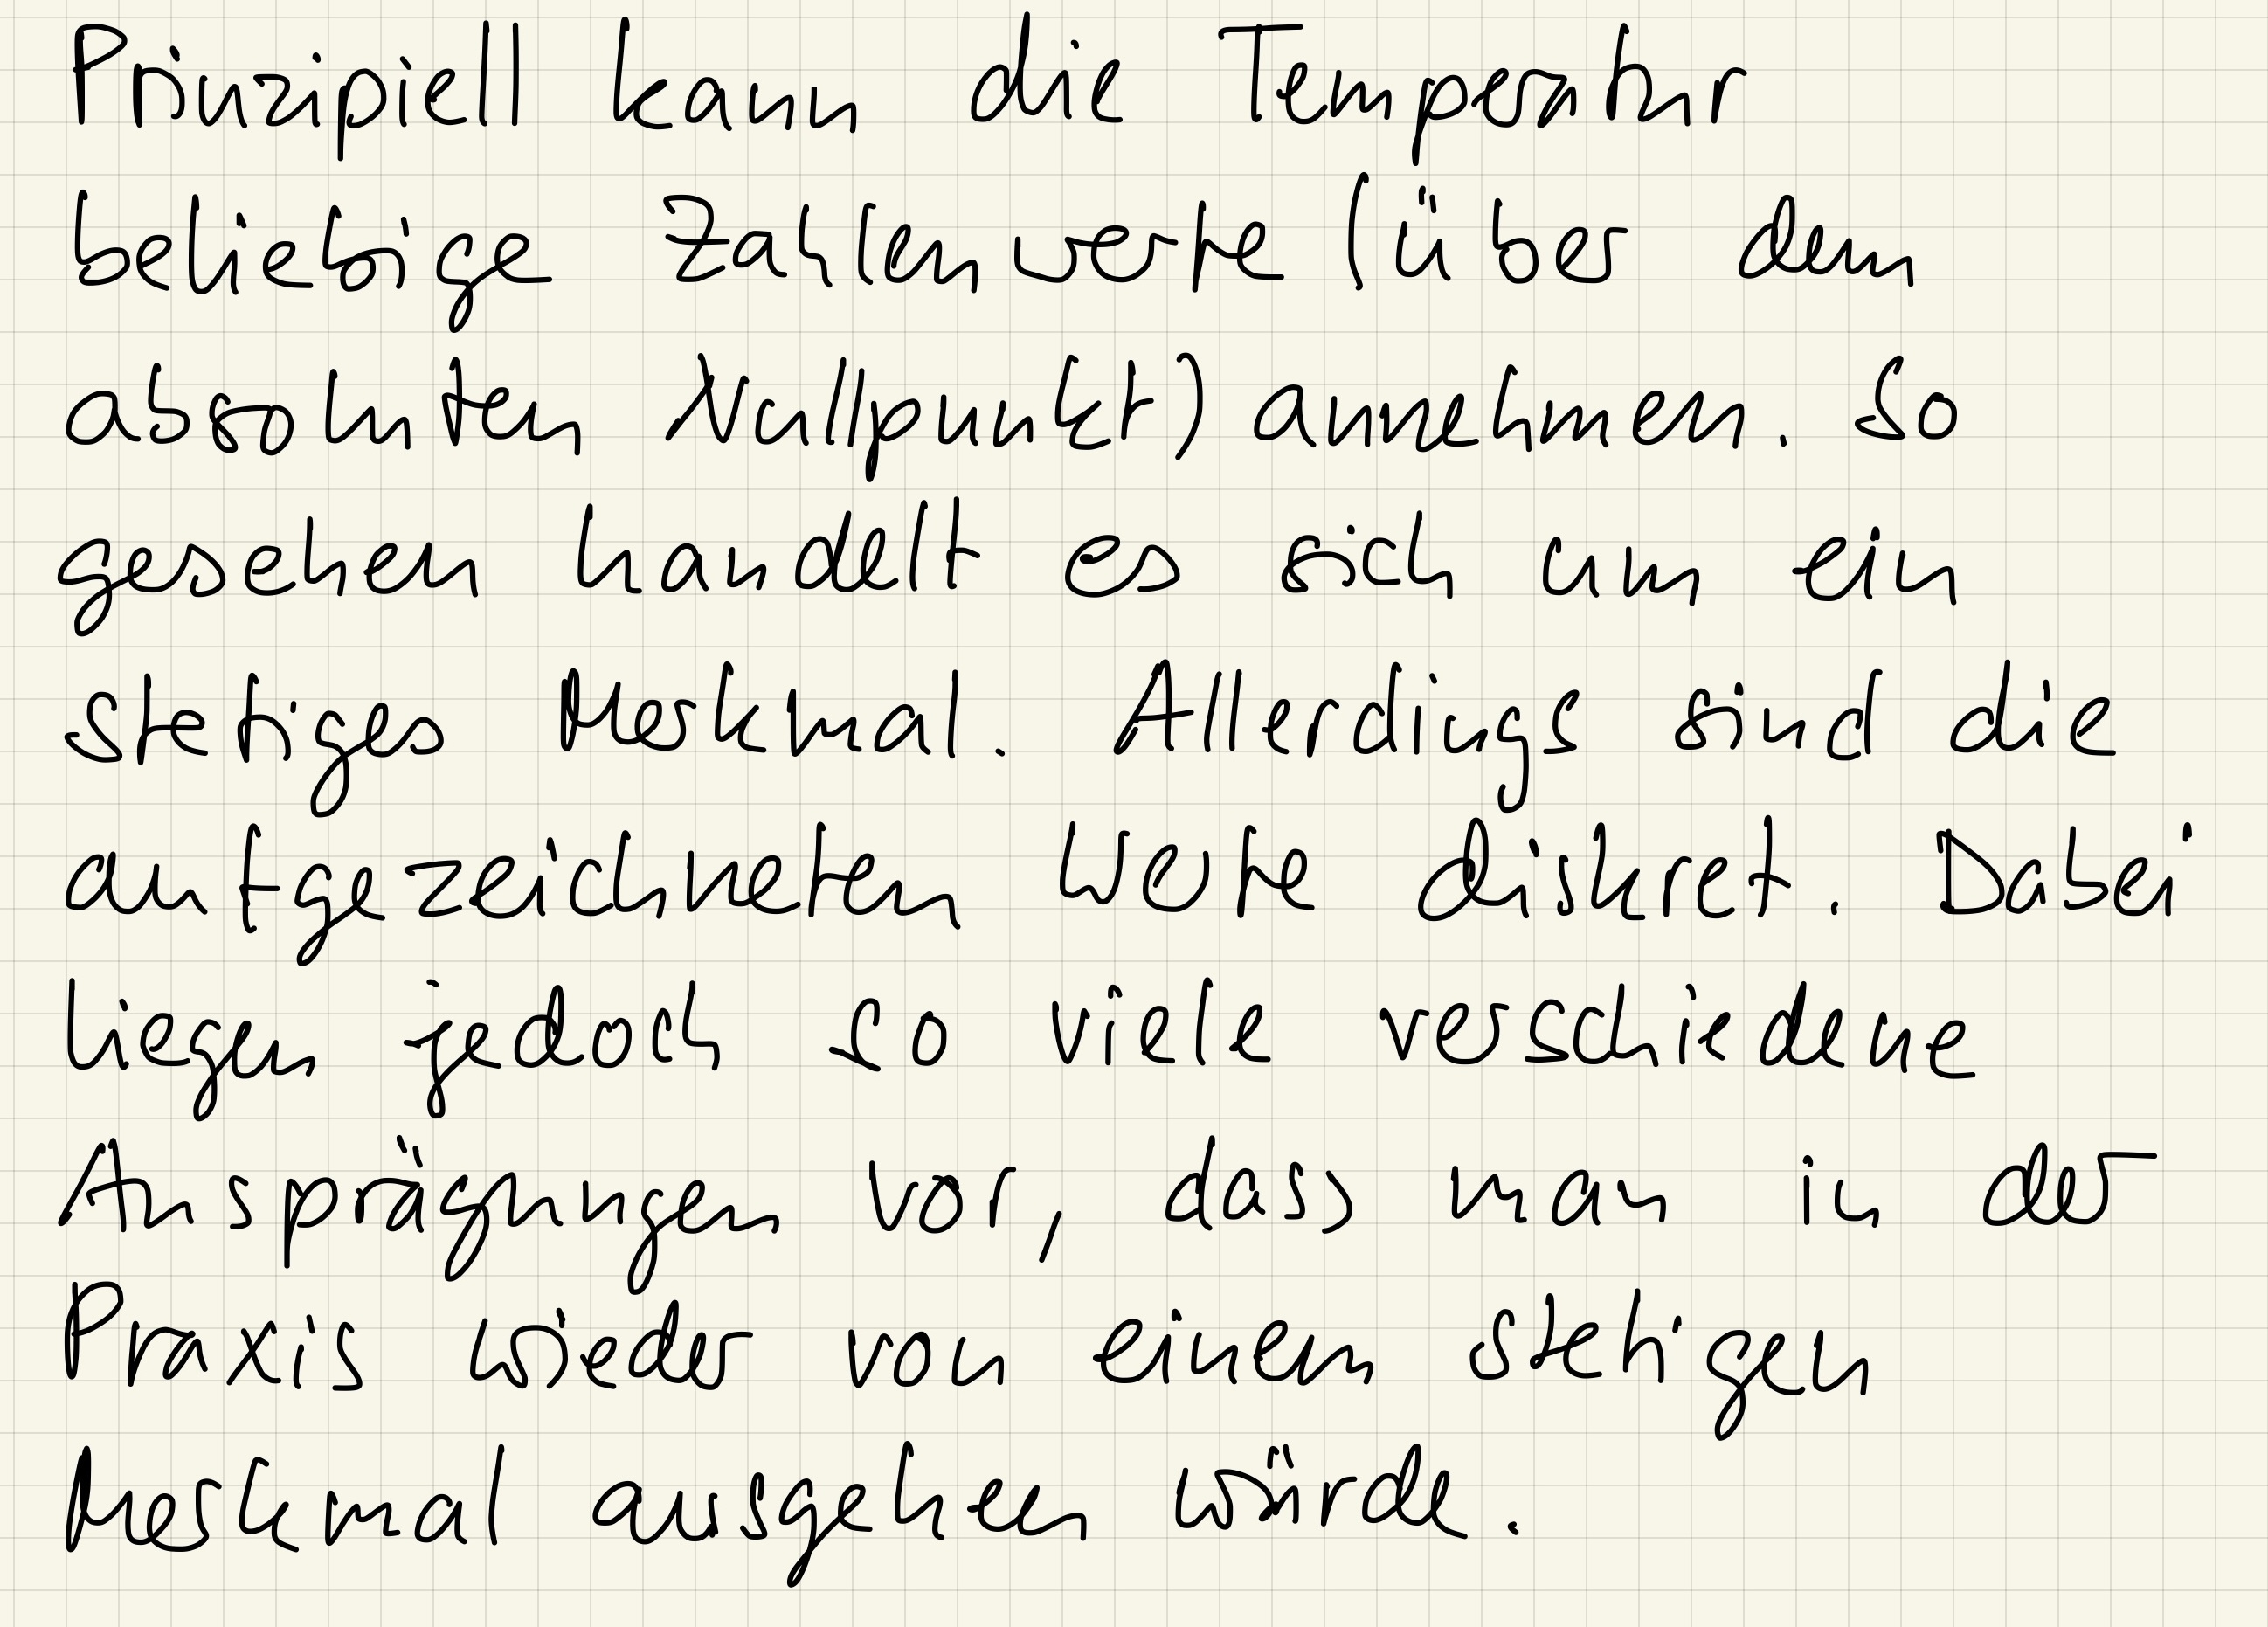 Prinzipiell kann die Temperatur
beliebige Zahlenwerte (über dem
absoluten Nullpunkt) annehmen. So
gesehen handelt es sich um ein
stetiges Merkmal. Allerdings sind die
aufgezeichneten Werte diskret. Dabei
liegen jedoch so viele verschiedene
Ausprägungen vor, dass man in der
Praxis wieder von einem stetigen
Merkmal ausgehen würde.